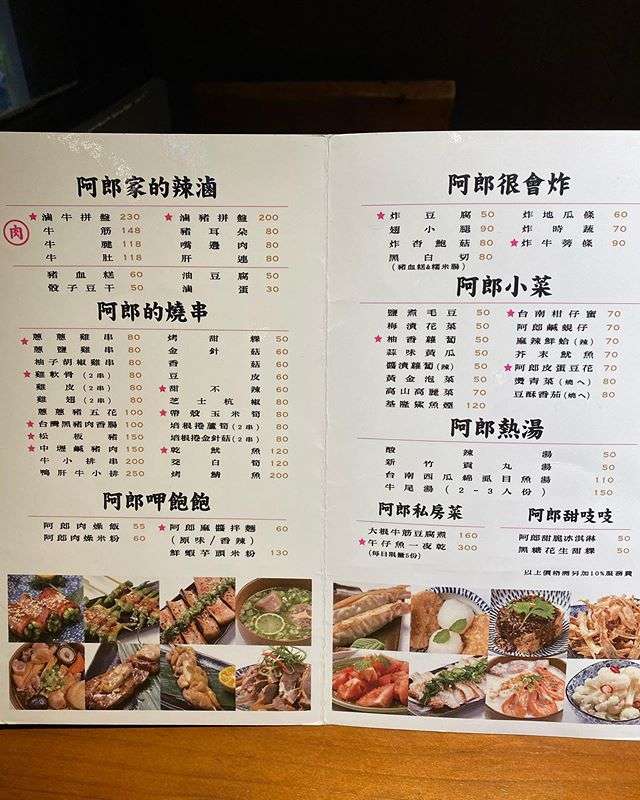 阿郎家的辣滷
肉
★滷牛拼盤 230 ★滷豬拼盤 200
牛筋 148 豬耳朵 80
牛腱 118 嘴邊肉 80
牛肚 118 肝連 80
豬血糕 60 油豆腐 50
骰子豆干 50 滷蛋 30
阿郎的燒串
★蔥蔥雞串 80 烤甜粿 50
蔥鹽雞串 80 金針菇 60
柚子胡椒雞串 80 香菇 60
★雞軟骨(2串) 80 豆皮 60
雞皮(2串) 80 ★甜不辣 60
雞翅(2串) 80 芝士杭椒 80
蔥蔥豬五花 100 ★帶殼玉米筍 80
★台灣黑豬肉香腸 100 培根捲蘆筍(2串) 80
★松板豬 150 培根捲金針菇(2串) 80
★中壢鹹豬肉 150 ★乾魷魚 120
牛小排串 200 茭白筍 120
鴨肝牛小排 250 烤鯖魚 200
阿郎呷飽飽
阿郎肉燥飯 55 ★阿郎麻醬拌麵 60
阿郎肉燥米粉 60 (原味/香辣)
鮮蝦芋頭米粉 130
阿郎很會炸
★炸豆腐 50 炸地瓜條 60
翅小腿 90 炸時蔬 70
炸杏鮑菇 80 ★炸牛蒡條 90
黑白切 80
(豬血糕&糯米腸)
阿郎小菜
鹽煮毛豆 50 ★台南柑仔蜜 70
梅漬花菜 50 阿郎鹹蜆仔 70
★柚香蘿蔔 50 麻辣鮮蛤(辣) 70
蒜味黃瓜 50 芥末魷魚 70
醬漬蘿蔔(辣) 50 ★阿郎皮蛋豆花 70
黃金泡菜 50 燙青菜(燒へ) 80
高山高麗菜 70 豆酥番茄(燒へ) 80
基隆鯊魚煙 120
阿郎熱湯
酸辣湯 50
新竹貢丸湯 50
台南西瓜綿虱目魚湯 110
牛尾湯(2-3人份) 150
阿郎私房菜
大根牛筋豆腐煮 160
★午仔魚一夜乾 300
(每日限量5份)
阿郎甜吱吱
阿郎甜脆冰淇淋 50
黑糖花生甜粿 50
以上價格需另加10%服務費